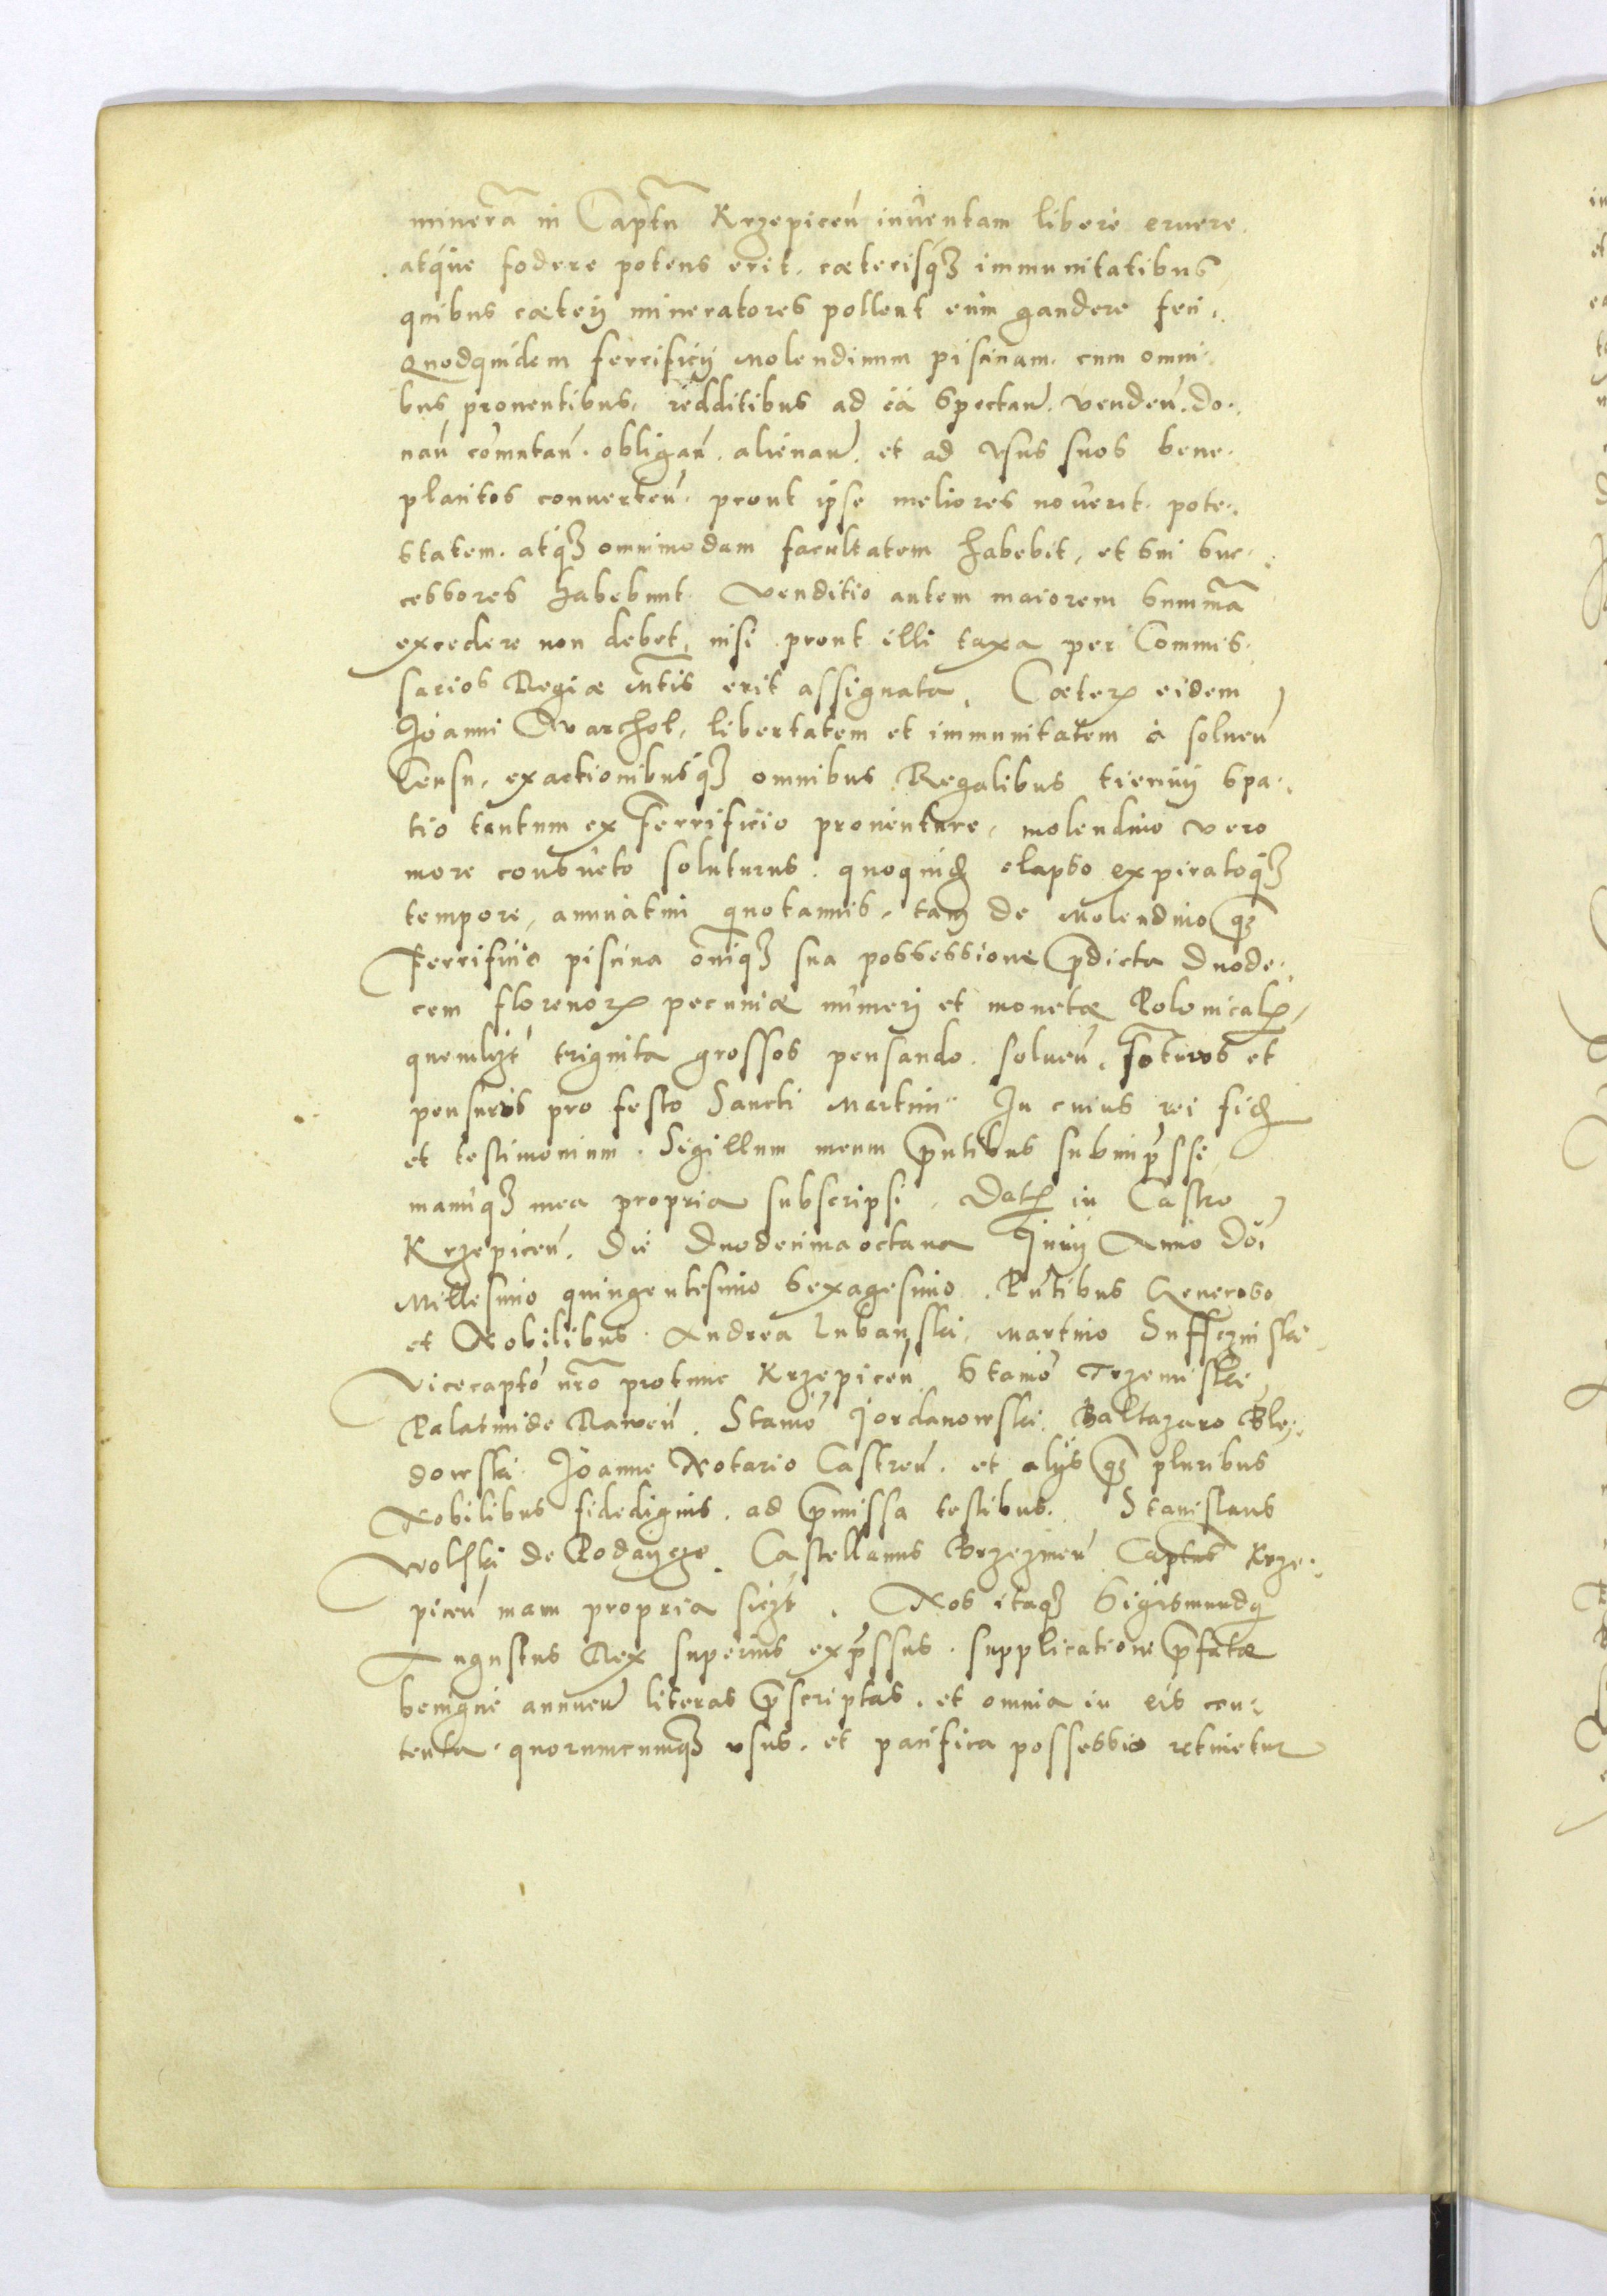 minerã in Captũ Krzepiceñ inuentam libere eruere
atque fodere potens erit. cæterisq₃ immunitatibus
quibus cæterj mineratores pollent eum gaudere feci.
Quodquidem ferrificij Molendinum piscinam cum omni-
bus prouentibus, redditibus ad ea spectañ. vendeñ. do-
nañ comutañ. obligañ. alienañ. et ad vsus suos bene-
placitos conuerteñ. prout ipse meliores nouerit. pote-
statem. atq₃ omnimodam facultatem habebit, et sui suc-
cessores habebunt. Venditio autem maiorem summã
excedere non debet, nisi prout illi taxa per Commis-
sarios Regiæ Mtis erit assignata. Cæterꝝ eidem
Joanni Warchol, libertatem et immunitatem à solueñ
Censu, exactionibusq₃ omnibus Regalibus trienij spa-
tio tantum ex Ferrificio prouenture, molendino vero
more consueto soluturus. quoquidē elapso expiratoq₃
tempore, annuatim quotannis, tam de Molendino q₃
Ferrificio piscina oniq₃ sua possessione p̄dicta duode-
cem florenorꝝ pecuniæ numerj et monetæ Polonicalꝭ,
quemlizt triginta grossos pensando. solueñ. Foturos et
pensuros pro festo Sancti Martini. In cuius rei fidē
et testimonium. Sigillum meum p̄ntibus subimp̄ssi
manuq₃ mea propria subscripsi. Datꝭ in Castro
Krzepiceñ. Die Duodecima octaua Junij Anno Doi
Millesimo quingentesimo sexagesimo. Pñtibus Generoso
et Nobilibus. Andrea Lubansski, Martino Suffczinski
Vicecapto nrõ protunc Krzepiceñ Stanio Trzemiski
Palatinide Raweñ. Stanio Jordanowski. Baltazaro Ble-
dowski. Joanne Notario Castreñ. et alijs q₃ pluribus
Nobilibus fidedignis. ad p̄missa testibus. Stanislaus
Wolski de Podaycze. Castellanus Brzezineñ Captus Krze-
piceñ manu propria sczt. Nos itaq₃ Sigismundꝯ
Augustus Rex superius exp̄ssus. supplicatione p̄fatæ
benigne annueñ literas p̄scriptas. et omnia in eis con-
tenta. quorumcumq₃ vsus. et pacifica possessio retinetur